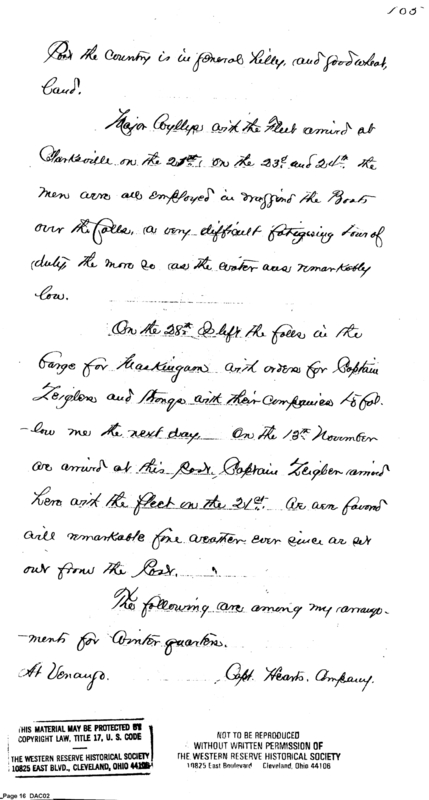 105
Post the Country is in general hilly, and good wheat,
land.
Major Wyllys with the Fleet arrived at
Clarksville on the on the 23d. and 24th. the
men were all employed in dragging the Boats
over the falls, a very difficult fatigising tour of
duty, the more so as the water was remarkably
low.
On the 28th I left the falls in the
barge for Muskingum with orders for Captain
Zeiglers and Strongs with their Companies to fol-
-low me the next day On the 13th November
we arrived at this Post, Captain Zeigler arrived
here with the fleet on the 21st. We were favored
with remarkable fine weather ever since we set
out from the Post.
The following are among my arrange-
-ments for Winter quarters.
At Venango. Capt. Hearts. Company.
THIS MATERIAL MAY BE PROTECTED BY
COPYRIGHT LAW, TITLE 17, U. S. CODE
THE WESTERN RESERVE HISTORICAL SOCIETY
10825 EAST BLVD., CLEVELAND, OHIO 44106
NOT TO BE REPRODUCED
WITHOUT WRITTEN PERMISSION OF
THE WESTERN RESERVE HISTORICAL SOCIETY
10825 East Boulevard Cleveland, Ohio 44106
Page 16 DAC02